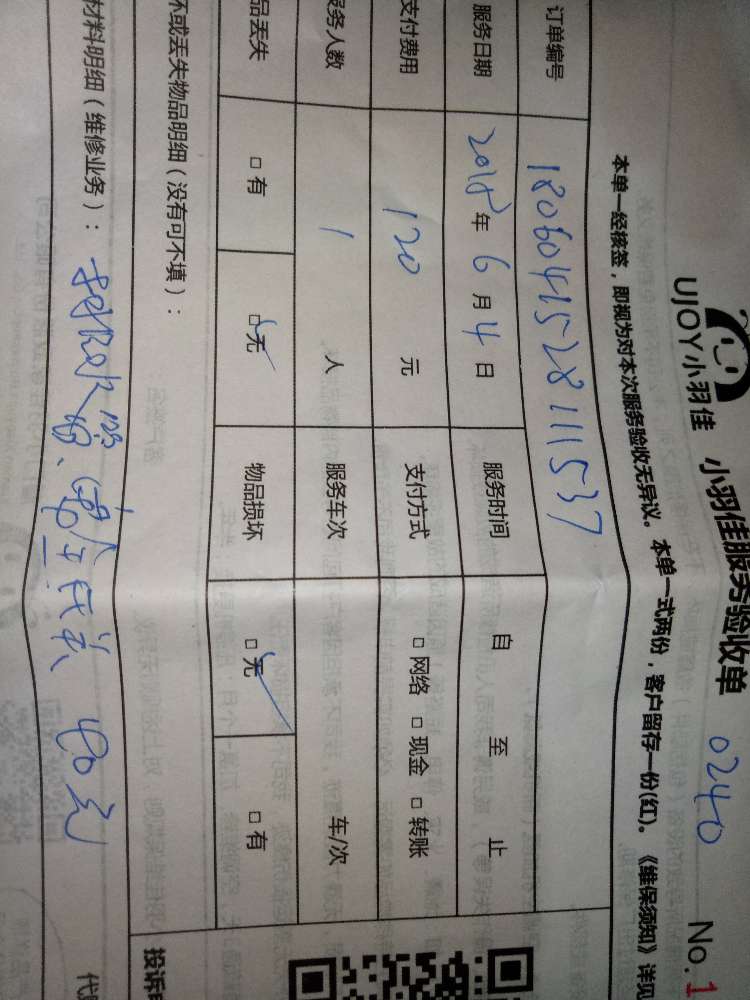 UJOY小羽佳 小羽佳服务验收单 0240 No.1
本单一经核签，即视为对本次服务验收无异议。本单一式两份，客户留存一份(红)。《维保须知》详见
订单编号 180604152811537
服务日期 2018年6月4日 服务时间 自 至 止
支付费用 120 元 支付方式 □ 网络 □ 现金 □ 转账
服务人数 1 人 服务车次 车/次
品丢失 □ 有 □ 无 物品损坏 □ 无 □ 有
坏或丢失物品明细（没有可不填）：
材料明细（维修业务）： 40元
投诉